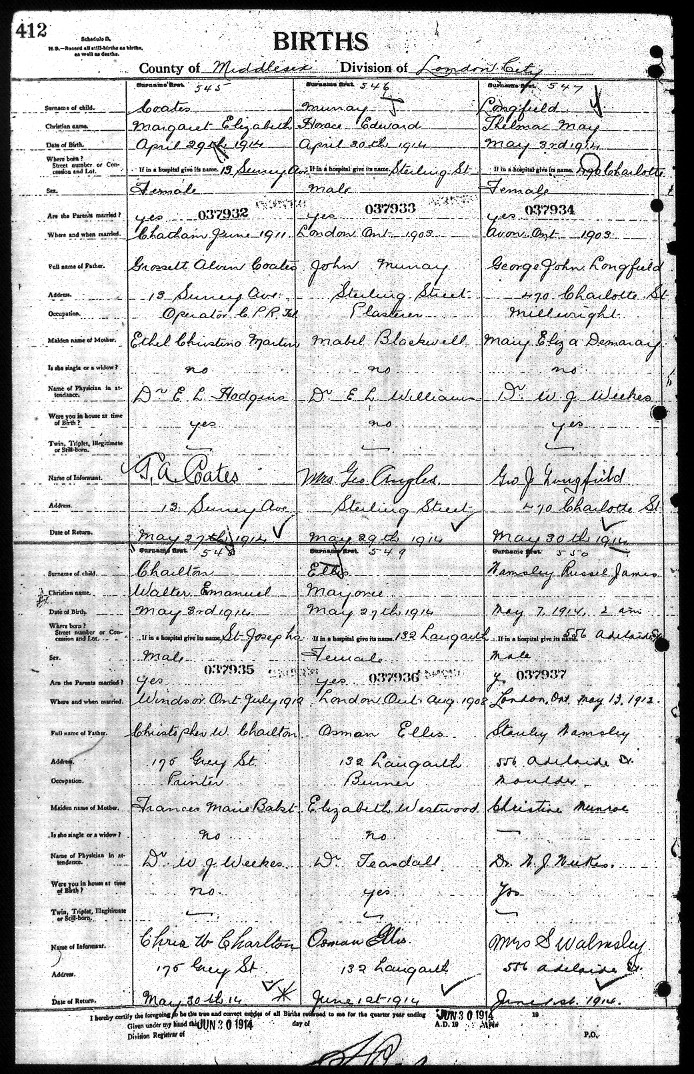 412
Schedule B.
N.B.—Record all still-births as births, as well as deaths.
BIRTHS
County of Middlesex Division of London City
545 546 547
Surname of child. Coates Murray Longfield
Christian name. Margaret Elizabeth Horace Edward Thelma May
Date of Birth. April 29th 1914 April 30th 1914 May 3rd 1914
Where born?
Street number or Concession and Lot. If in a hospital give its name. 13 Surrey Av. If in a hospital give its name. Sterling St. If in a hospital give its name. 470 Charlotte
Sex. Female Male Female
037932 037933 037934
Are the Parents married? yes yes yes
Where and when married. Chatham June 1911. London Ont 1903 Avon Ont 1903
Full name of Father. Grossett Alvin Coates John Murray George John Longfield
Address. 13 Surrey Ave. Sterling Street 470 Charlotte St
Occupation. Operator C.P.R. Tel Plasterer Millwright
Maiden name of Mother. Ethel Christina Martin Mabel Blackwell Mary Eliza Demaray
Is she single or a widow? no no no
Name of Physician in attendance. Dr E L Hodgins Dr E L Williams Dr W J Weekes
Were you in house at time of Birth? yes no yes
Twin, Triplet, Illegitimate or Still-born. — — —
Name of Informant. T.A. Coates Mrs Geo. Geo J Longfield
Address. 13 Surrey Ave Sterling Street 470 Charlotte St
Date of Return. May 27th 1914 May 29th 1914 May 30th 1914
548 549 550
Surname of child. Charlton Ellis Wamsley Russel James
Christian name. Walter Emanuel Marjorie
Date of Birth. May 3rd 1914 May 27th 1914 May 7, 1914, 2 am
Where born?
Street number or Concession and Lot. If in a hospital give its name. St Josephs If in a hospital give its name. 132 Langarth If in a hospital give its name. 556 Adelaide
Sex. Male Female Male
037935 037936 037937
Are the Parents married? yes yes y
Where and when married. Windsor Ont July London Ont Aug. 1908 London, Ont. May 13, 1912.
Full name of Father. Christopher W. Charlton Osman Ellis Stanley Wamsley
Address. 175 Grey St. 132 Langarth 556 Adelaide St.
Occupation. Painter Burner Moulder
Maiden name of Mother. Frances Marie Elizabeth Westwood Christine Munroe
Is she single or a widow? no no —
Name of Physician in attendance. Dr W J Weekes Dr Teasdall Dr. W. J. Weekes.
Were you in house at time of Birth? no. yes Yes
Twin, Triplet, Illegitimate or Still-born. — — —
Name of Informant. Chris W Charlton Osman Ellis Mrs S Walmsley
Address. 175 Grey St. 132 Langarth 556 Adelaide St.
Date of Return. May 30th 14 June 1st 1914 June 1st. 1914.
I hereby certify the foregoing to be the true and correct entries of all Births returned to me for the quarter year ending JUN 30 1914 19
Given under my hand this JUN 30 1914 day of A.D. 19
Division Registrar of P.O.